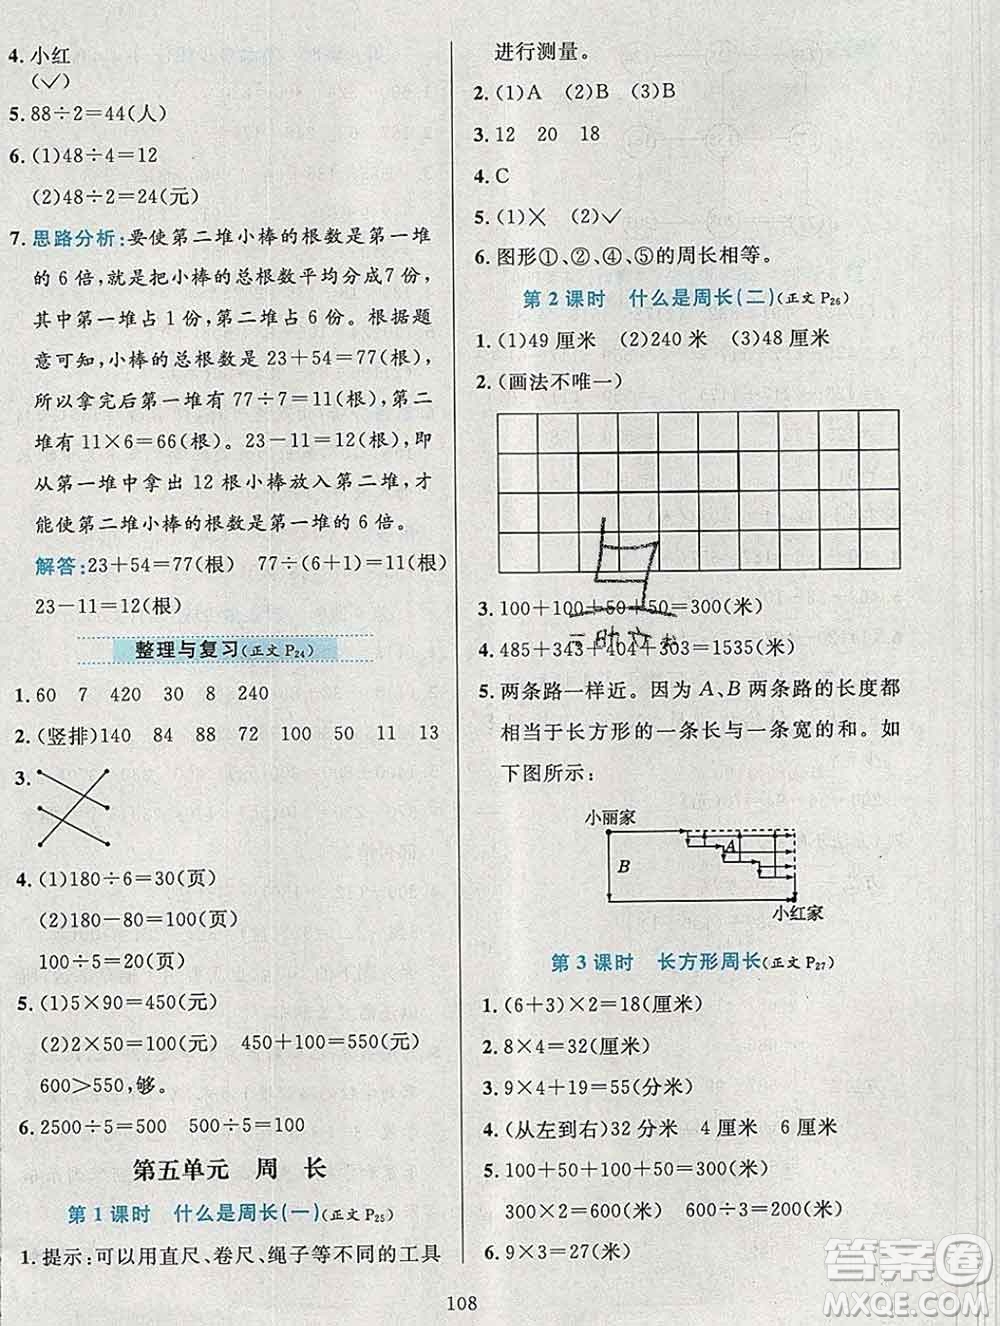 4. 小红
(✓)
5. 88÷2=44(人)
6. (1)48÷4=12
(2)48÷2=24(元)
7. 思路分析:要使第二堆小棒的根数是第一堆
的 6 倍,就是把小棒的总根数平均分成7 份,
其中第一堆占 1 份,第二堆占 6 份。根据题
意可知,小棒的总根数是 23+54=77(根),
所以拿完后第一堆有 77÷7=11(根),第二
堆有 11×6=66(根)。23-11=12(根),即
从第一堆中拿出 12 根小棒放入第二堆,才
能使第二堆小棒的根数是第一堆的 6 倍。
解答:23+54=77(根) 77÷(6+1)=11(根)
23-11=12(根)
整理与复习(正文 P24)
1. 60 7 420 30 8 240
2. (竖排)140 84 88 72 100 50 11 13
3.
4. (1)180÷6=30(页)
(2)180-80=100(页)
100÷5=20(页)
5. (1)5×90=450(元)
(2)2×50=100(元) 450+100=550(元)
600>550,够。
6. 2500÷5=500 500÷5=100
第五单元 周 长
第 1 课时 什么是周长(一)(正文 P25)
1. 提示:可以用直尺、卷尺、绳子等不同的工具
进行测量。
2. (1)A (2)B (3)B
3. 12 20 18
4. C
5. (1)✕ (2)✓
6. 图形①、②、④、⑤的周长相等。
第 2 课时 什么是周长(二)(正文 P26)
1. (1)49 厘米 (2)240 米 (3)48 厘米
2. (画法不唯一)
3. 100+100+50+50=300(米)
4. 485+343+404+303=1535(米)
5. 两条路一样近。因为 A、B 两条路的长度都
相当于长方形的一条长与一条宽的和。如
下图所示:
小丽家
A
B
小红家
第 3 课时 长方形周长(正文 P27)
1. (6+3)×2=18(厘米)
2. 8×4=32(厘米)
3. 9×4+19=55(分米)
4. (从左到右)32 分米 4 厘米 9 厘米
5. 100+50+100+50=300(米)
300×2=600(米) 600×2=1200(米)
6. 9×3=27(米)
108
答案圈
MXQE.COM